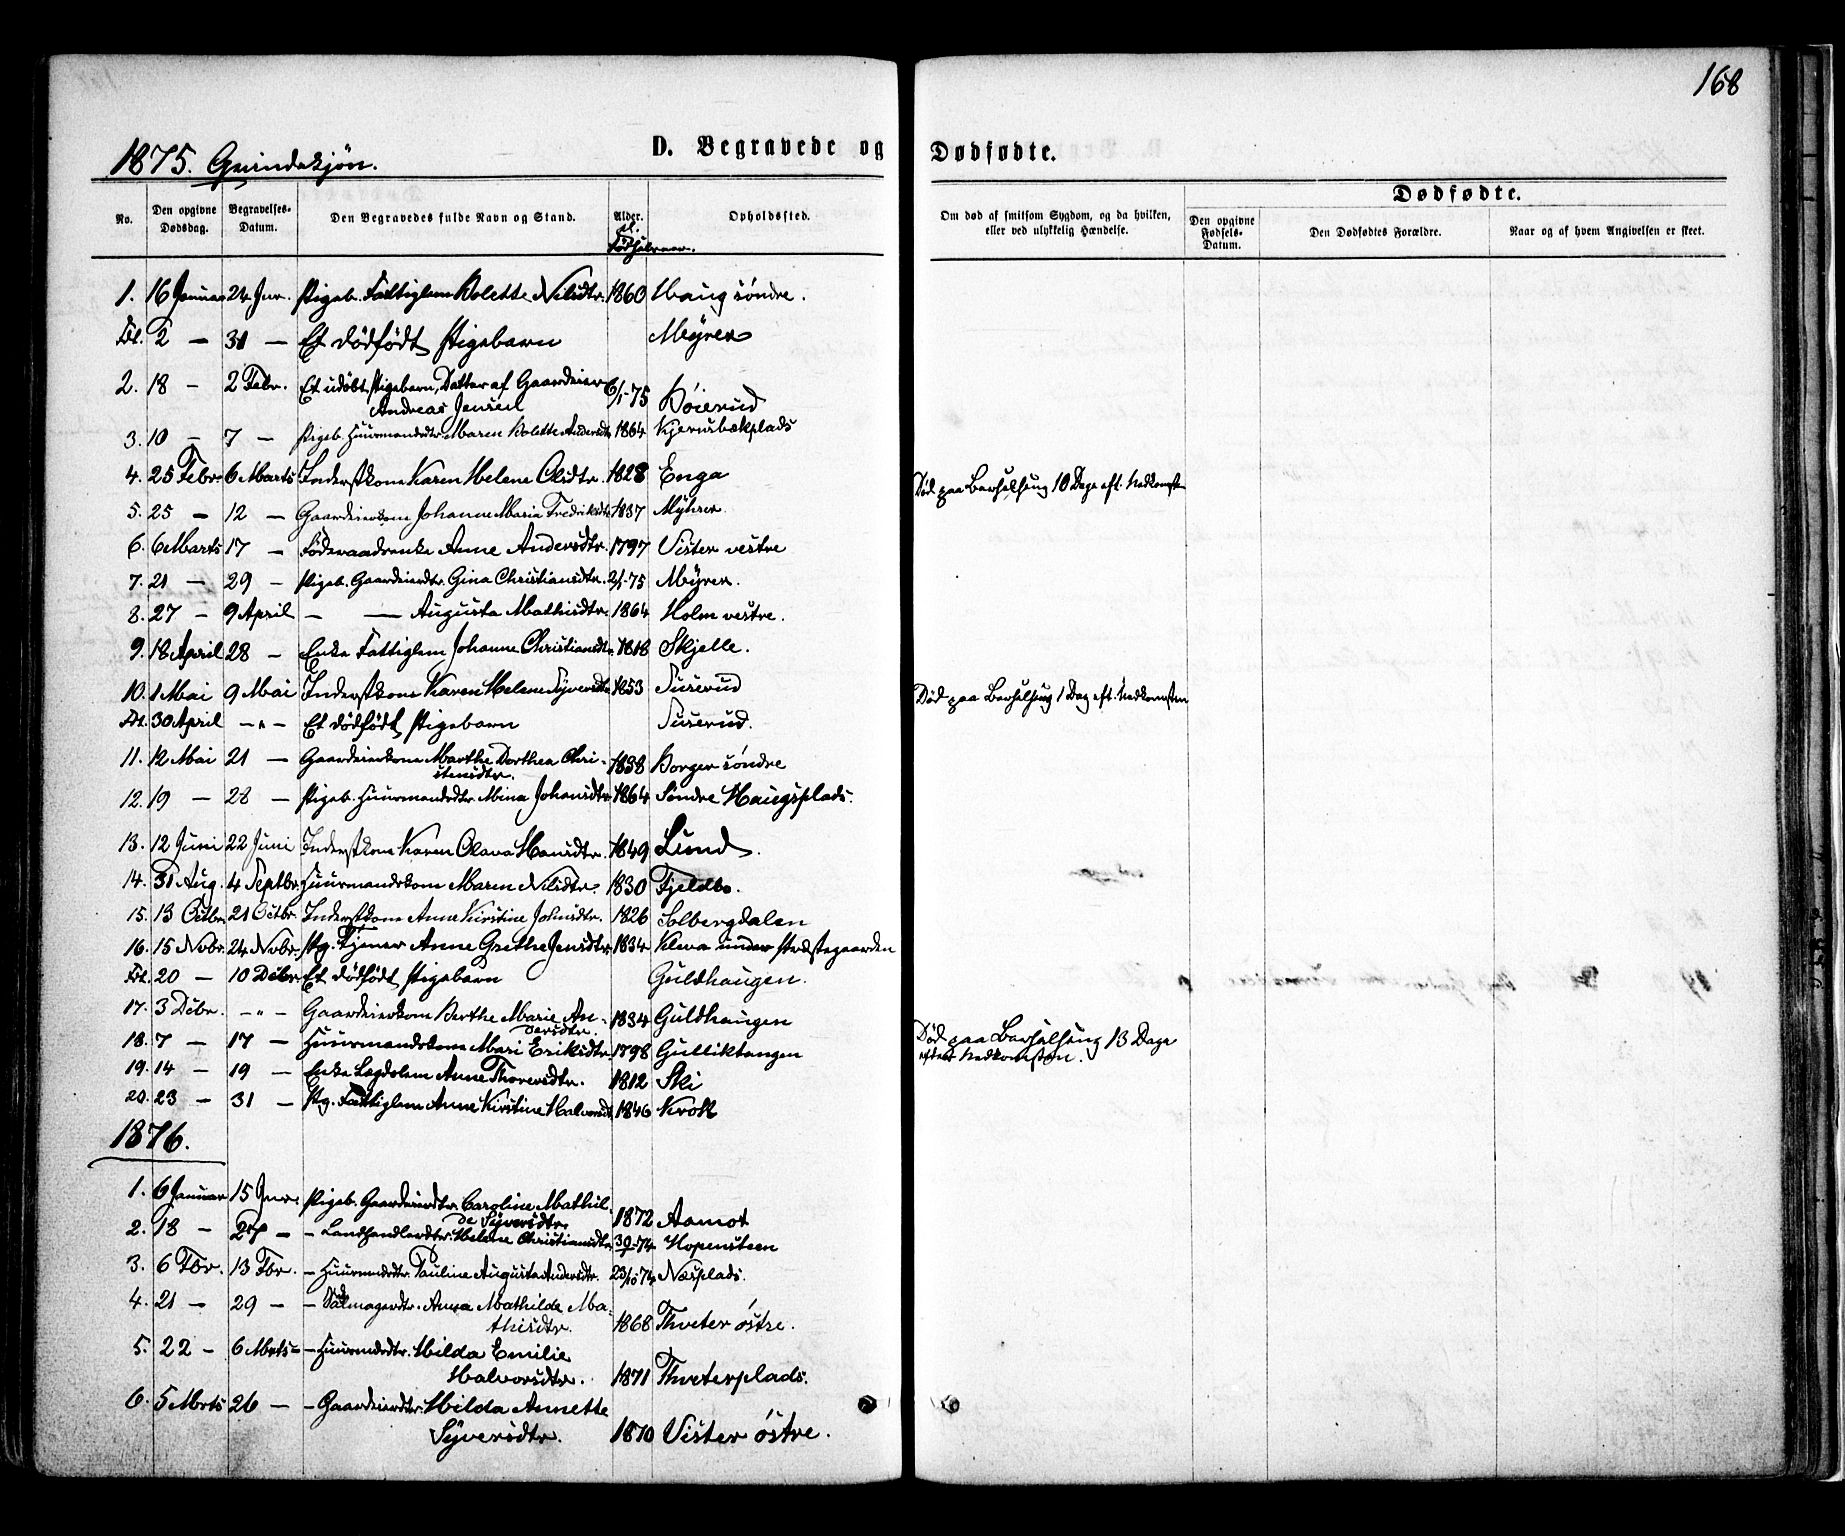 168
1875. Qvindekjøn.
D. Begravede og Dødfødte.
No. Den opgivne Dødsdag. Begravelses-Datum. Den Begravedes fulde Navn og Stand. Alder. el. Fødselsaar. Opholdssted.
Om død af smitsom Sygdom, og da hvilken, eller ved ulykkelig Hændelse.
Dødfødte.
Den opgivne Fødsels-Datum. Den Dødfødtes Forældre. Naar og af hvem Angivelsen er skeet.
1. 16 Januar 24 Jnr. Pigeb. Fattiglem Bolette Nilsdtr. 1860 Haug søndre.
2 — 31 — Et dødfødt Pigebarn Myrer
2. 18 — 2 Febr. Et udøbt Pigebarn, Datter af Gaardeier 6/1-75
Andreas Jensen Høierud
3. 10 — 7 — Pigeb. Huusmandsdtr. Maren Bolette Andersdtr. 1864 Kjernsbækplads
4. 25 Febr. 6 Marts Inderstkone Karen Helene Olsdtr. 1828 Enga Død paa Barselseng 10 Dage eft. Nedkomst
5. 25 — 12 — Gaardeierkone Johanne Maria Fredriksdtr. 1837 Myhrer.
6. 6 Marts 17 — Føderaadsenke Anne Andersdtr. 1797 Vister vestre
7. 21 — 29 — Pigeb. Gaardeierdtr. Gina Christiansdtr. 2/1-75 Myrer.
8. 27 — 9 April — — Augusta Mathisdtr. 1864 Holm vestre.
9. 18 April 28 — Enke Fattiglem Johanne Christiansdtr. 1818 Skjelle.
10. 1 Mai 9 Mai Inderstkone Karen Helene Syversdtr. 1853 Suserud Død paa Barselseng 1 Dag eft. Nedkomsten
30 April —„— Et dødfødt Pigebarn Suserud.
11. 12 Mai 21 — Gaardeierkone Marthe Dorthea Chri-
stensdtr. 1838 Borger søndre
12. 19 — 28 — Pigeb. Huusmandsdtr. Mina Johansdtr. 1864 Søndre Haugsplads.
13. 12 Juni 22 Juni Inderstkone Karen Olava Hansdtr. 1849 Lund.
14. 31 Aug. 4 Septbr. Huusmandskone Maren Nilsdtr. 1830 Fjeldbo.
15. 13 Octbr. 21 Octbr. Inderstkone Anne Kirstine Johnsdtr. 1826 Solbergdalen
16. 15 Novbr. 24 Novbr. Pg. Tjener Anne Grethe Jensdtr. 1834 Kleva under Præstegaarden
20 — 10 Dcbr. Et dødfødt Pigebarn Guldhaugen.
17. 3 Dcbr. —„— Gaardeierkone Berthe Marie An-
dersdtr. 1834 Guldhaugen Død paa Barselseng 13 Dage
efter Nedkomsten.
18. 7 — 17 — Huusmandskone Mari Eriksdtr. 1798 Gulliktangen
19. 14 — 19 — Enke Lægdslem Anne Thorersdtr. 1812 Ski
20. 23 — 31 — Pg. Fattiglem Anne Kirstine Halvorsdtr. 1846 Krok
1876.
1. 6 Januar 15 Jnr. Pigeb. Gaardeierdtr. Caroline Mathil-
de Syversdtr. 1872 Aamot
2. 18 — 27 — — Landhandlerdtr. Helene Christiansdtr. Hopensteen
3. 6 Fbr. 13 Fbr. — Huusmdsdtr. Pauline Augusta Andersdtr. 23/10 74 Næsplads.
4. 21 — 29 — — Sadelmagerdtr. Anna Mathilde Ma-
thisdtr. 1868 Thveter østre.
5. 22 — 6 Mrts — Huusmdsdtr. Hilda Emilie
Halvorsdtr. 1871 Thveterplads.
6. 5 Mrts 26 — — Gaardeierdtr. Hilda Annette
Syversdtr. 1870 Vister østre.